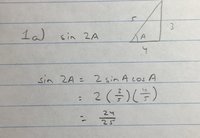 1a) sin 2A
5
3
A
4
sin 2A = 2 sin A cos A
= 2 (3/5)(4/5)
= 24/25